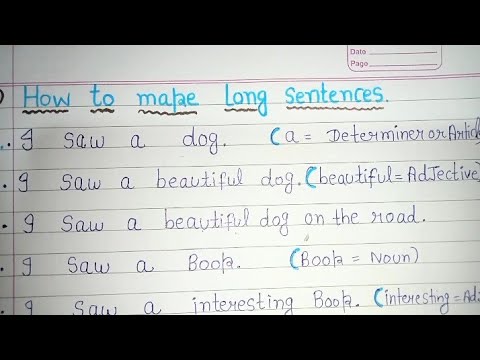 Date
Page
How to make long sentences.
I saw a dog. (a = Determiner or Artic
I saw a beautiful dog. (beautiful = Adjective)
I saw a beautiful dog on the road.
I saw a Book. (Book = Noun)
I saw a interesting Book. (interesting = Ad